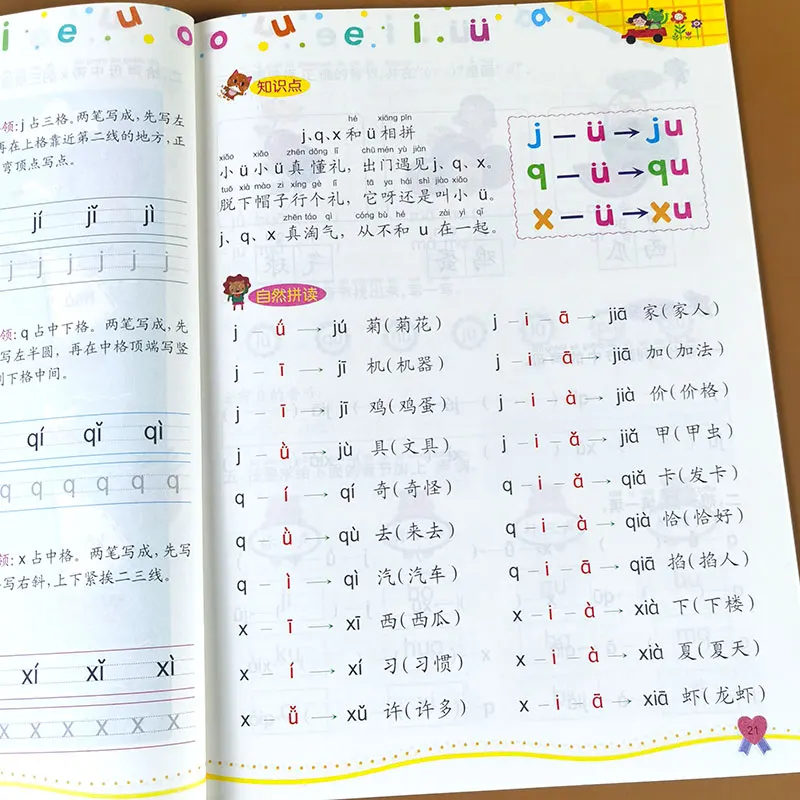 i e u o o u e i ü a
领: j 占三格。两笔写成,先写左
再在上格靠近第二线的地方,正
弯顶点写点。
jí jǐ jì
j j j j j j
领: q 占中下格。两笔写成,先
写左半圆,再在中格顶端写竖
到下格中间。
qí qǐ qì
q q q q q q
领: x 占中格。两笔写成,先写
写右斜,上下紧挨二三线。
xí xǐ xì
x x x x x x x
知识点
hé xiāng pīn
j、q、x 和 ü 相拼
xiǎo xiǎo zhēn dǒng lǐ chū mén yù jiàn
小 ü 小 ü 真懂礼,出门遇见 j、q、x。
tuō xià mào zi xíng gè lǐ tā ya hái shì jiào xiǎo
脱下帽子行个礼,它呀还是叫小 ü。
zhēn táo qì cóng bù hé zài yì qǐ
j、q、x 真淘气,从不和 u 在一起。
j — ü → ju
q — ü → qu
x — ü → xu
自然拼读
j – ú → jú 菊(菊花)
j – ī → jī 机(机器)
j – ī → jī 鸡(鸡蛋)
j – ǜ → jù 具(文具)
q – í → qí 奇(奇怪)
q – ǜ → qù 去(来去)
q – ì → qì 汽(汽车)
x – ī → xī 西(西瓜)
x í → xí 习(习惯)
x – ǚ → xǔ 许(许多)
j – i – ā → jiā 家(家人)
j – i – ā → jiā 加(加法)
j – i – à → jià 价(价格)
j – i – ǎ → jiǎ 甲(甲虫)
q – i – ǎ → qiǎ 卡(发卡)
q – i – à → qià 恰(恰好)
q – i – ā → qiā 掐(掐人)
x – i – à → xià 下(下楼)
x – i – à → xià 夏(夏天)
x – i – ā → xiā 虾(龙虾)
21